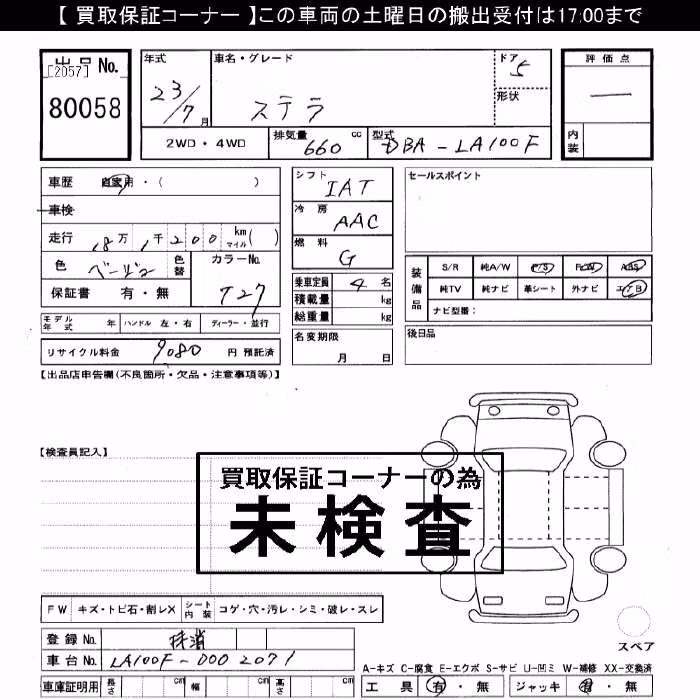 【 買取保証コーナー 】この車両の土曜日の搬出受付は17:00まで
出品 No.
[2057]
80058
年式
23/7 月
車名・グレード
ステラ
ドア
5
形状
2WD・4WD
排気量 660 cc
型式 DBA-LA100F
評価点
―
内装
車歴 自家用・( )
車検
走行 8万1千200 km マイル ( )
色 ベージュ 色替
カラーNo. T27
保証書 有・無
モデル年式 年 ハンドル 左・右 ディーラー・並行
リサイクル料金 9080 円 預託済
シフト IAT
冷房 AAC
燃料 G
乗車定員 4 名
積載量 kg
総重量 kg
名変期限
月 日
セールスポイント
装備品
S/R 純A/W P/S P/W ABS
純TV 純ナビ 革シート 外ナビ エアB
ナビ型番:
後日品
【出品店申告欄(不良箇所・欠品・注意事項等)】
【検査員記入】
買取保証コーナーの為
未検査
FW キズ・トビ石・割レX シート内装 コゲ・穴・汚レ・シミ・破レ・スレ
登録 No. 抹消
車台 No. LA100F-0002071
車庫証明用 長さ cm 幅 cm 高さ cm
スペア
A-キズ C-腐食 E-エクボ S-サビ U-凹ミ W-補修 XX-交換済
工具 有・無 ジャッキ 有・無